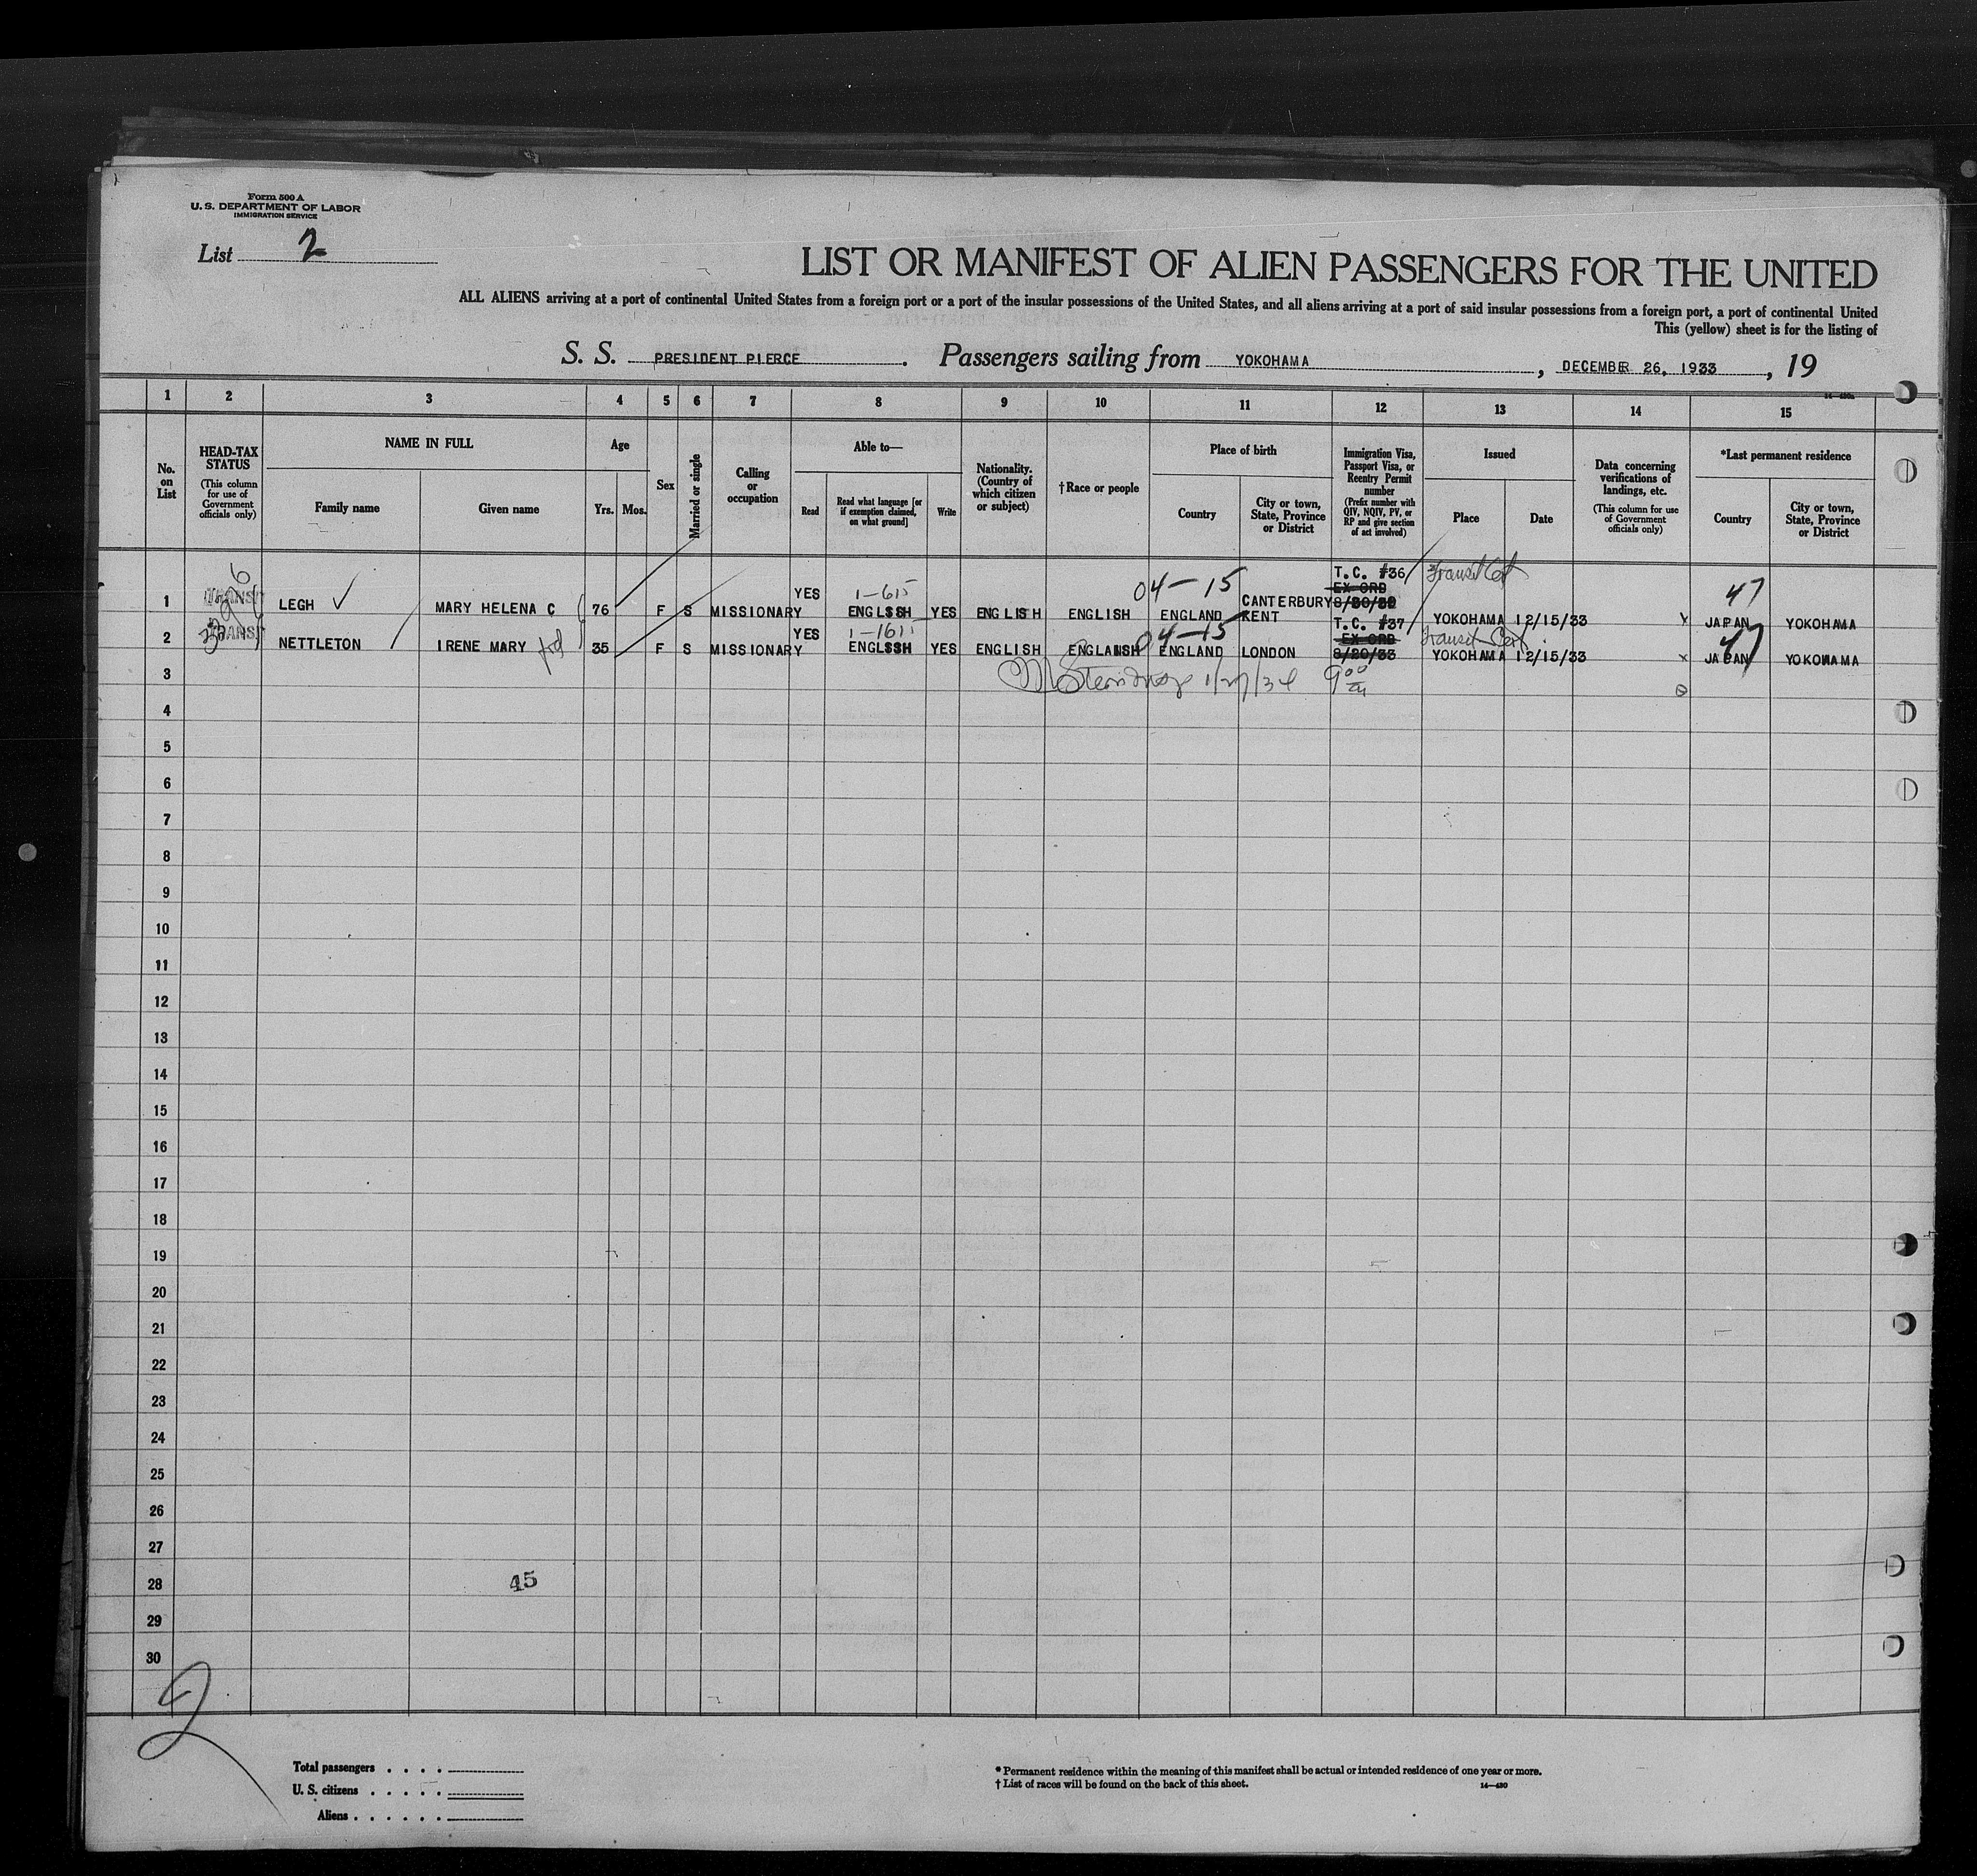 Form 500 A
U. S. DEPARTMENT OF LABOR
IMMIGRATION SERVICE
List 2
LIST OR MANIFEST OF ALIEN PASSENGERS FOR THE UNITED
ALL ALIENS arriving at a port of continental United States from a foreign port or a port of the insular possessions of the United States, and all aliens arriving at a port of said insular possessions from a foreign port, a port of continental United
This (yellow) sheet is for the listing of
S. S. PRESIDENT PIERCE. Passengers sailing from YOKOHAMA, DECEMBER 26, 1933, 19
1 2 3 4 5 6 7 8 9 10 11 12 13 14 15
No. on List
HEAD-TAX STATUS
(This column for use of Government officials only)
NAME IN FULL
Family name
Given name
Age
Yrs.
Mos.
Sex
Married or single
Calling or occupation
Able to—
Read
Read what language [or if exemption claimed, on what ground]
Write
Nationality. (Country of which citizen or subject)
†Race or people
Place of birth
Country
City or town, State, Province or District
Immigration Visa, Passport Visa, or Reentry Permit number
(Prefix number with QIV, NQIV, PV, or RP and give section of act involved)
Issued
Place
Date
Data concerning verifications of landings, etc.
(This column for use of Government officials only)
*Last permanent residence
Country
City or town, State, Province or District
T. C. #36 Transit Cert
EX ORD
04-15 47
YES 1-615 CANTERBURY
1 LEGH MARY HELENA C 76 F S MISSIONARY ENGLSSH YES ENGLISH ENGLISH ENGLAND KENT YOKOHAMA 12/15/33 JAPAN YOKOHAMA
T. C. #37 Transit Cert
YES 04-15 EX ORD 47
2 NETTLETON IRENE MARY 35 F S MISSIONARY ENGLSSH YES ENGLISH ENGLANSH ENGLAND LONDON 8/20/33 YOKOHAMA 12/15/33 JAPAN YOKOHAMA
3 1/27/34 9 00
4
5
6
7
8
9
10
11
12
13
14
15
16
17
18
19
20
21
22
23
24
25
26
27
28 45
29
30
2
Total passengers . . . .
U. S. citizens . . . . .
Aliens . . . . . .
* Permanent residence within the meaning of this manifest shall be actual or intended residence of one year or more.
† List of races will be found on the back of this sheet. 14—430